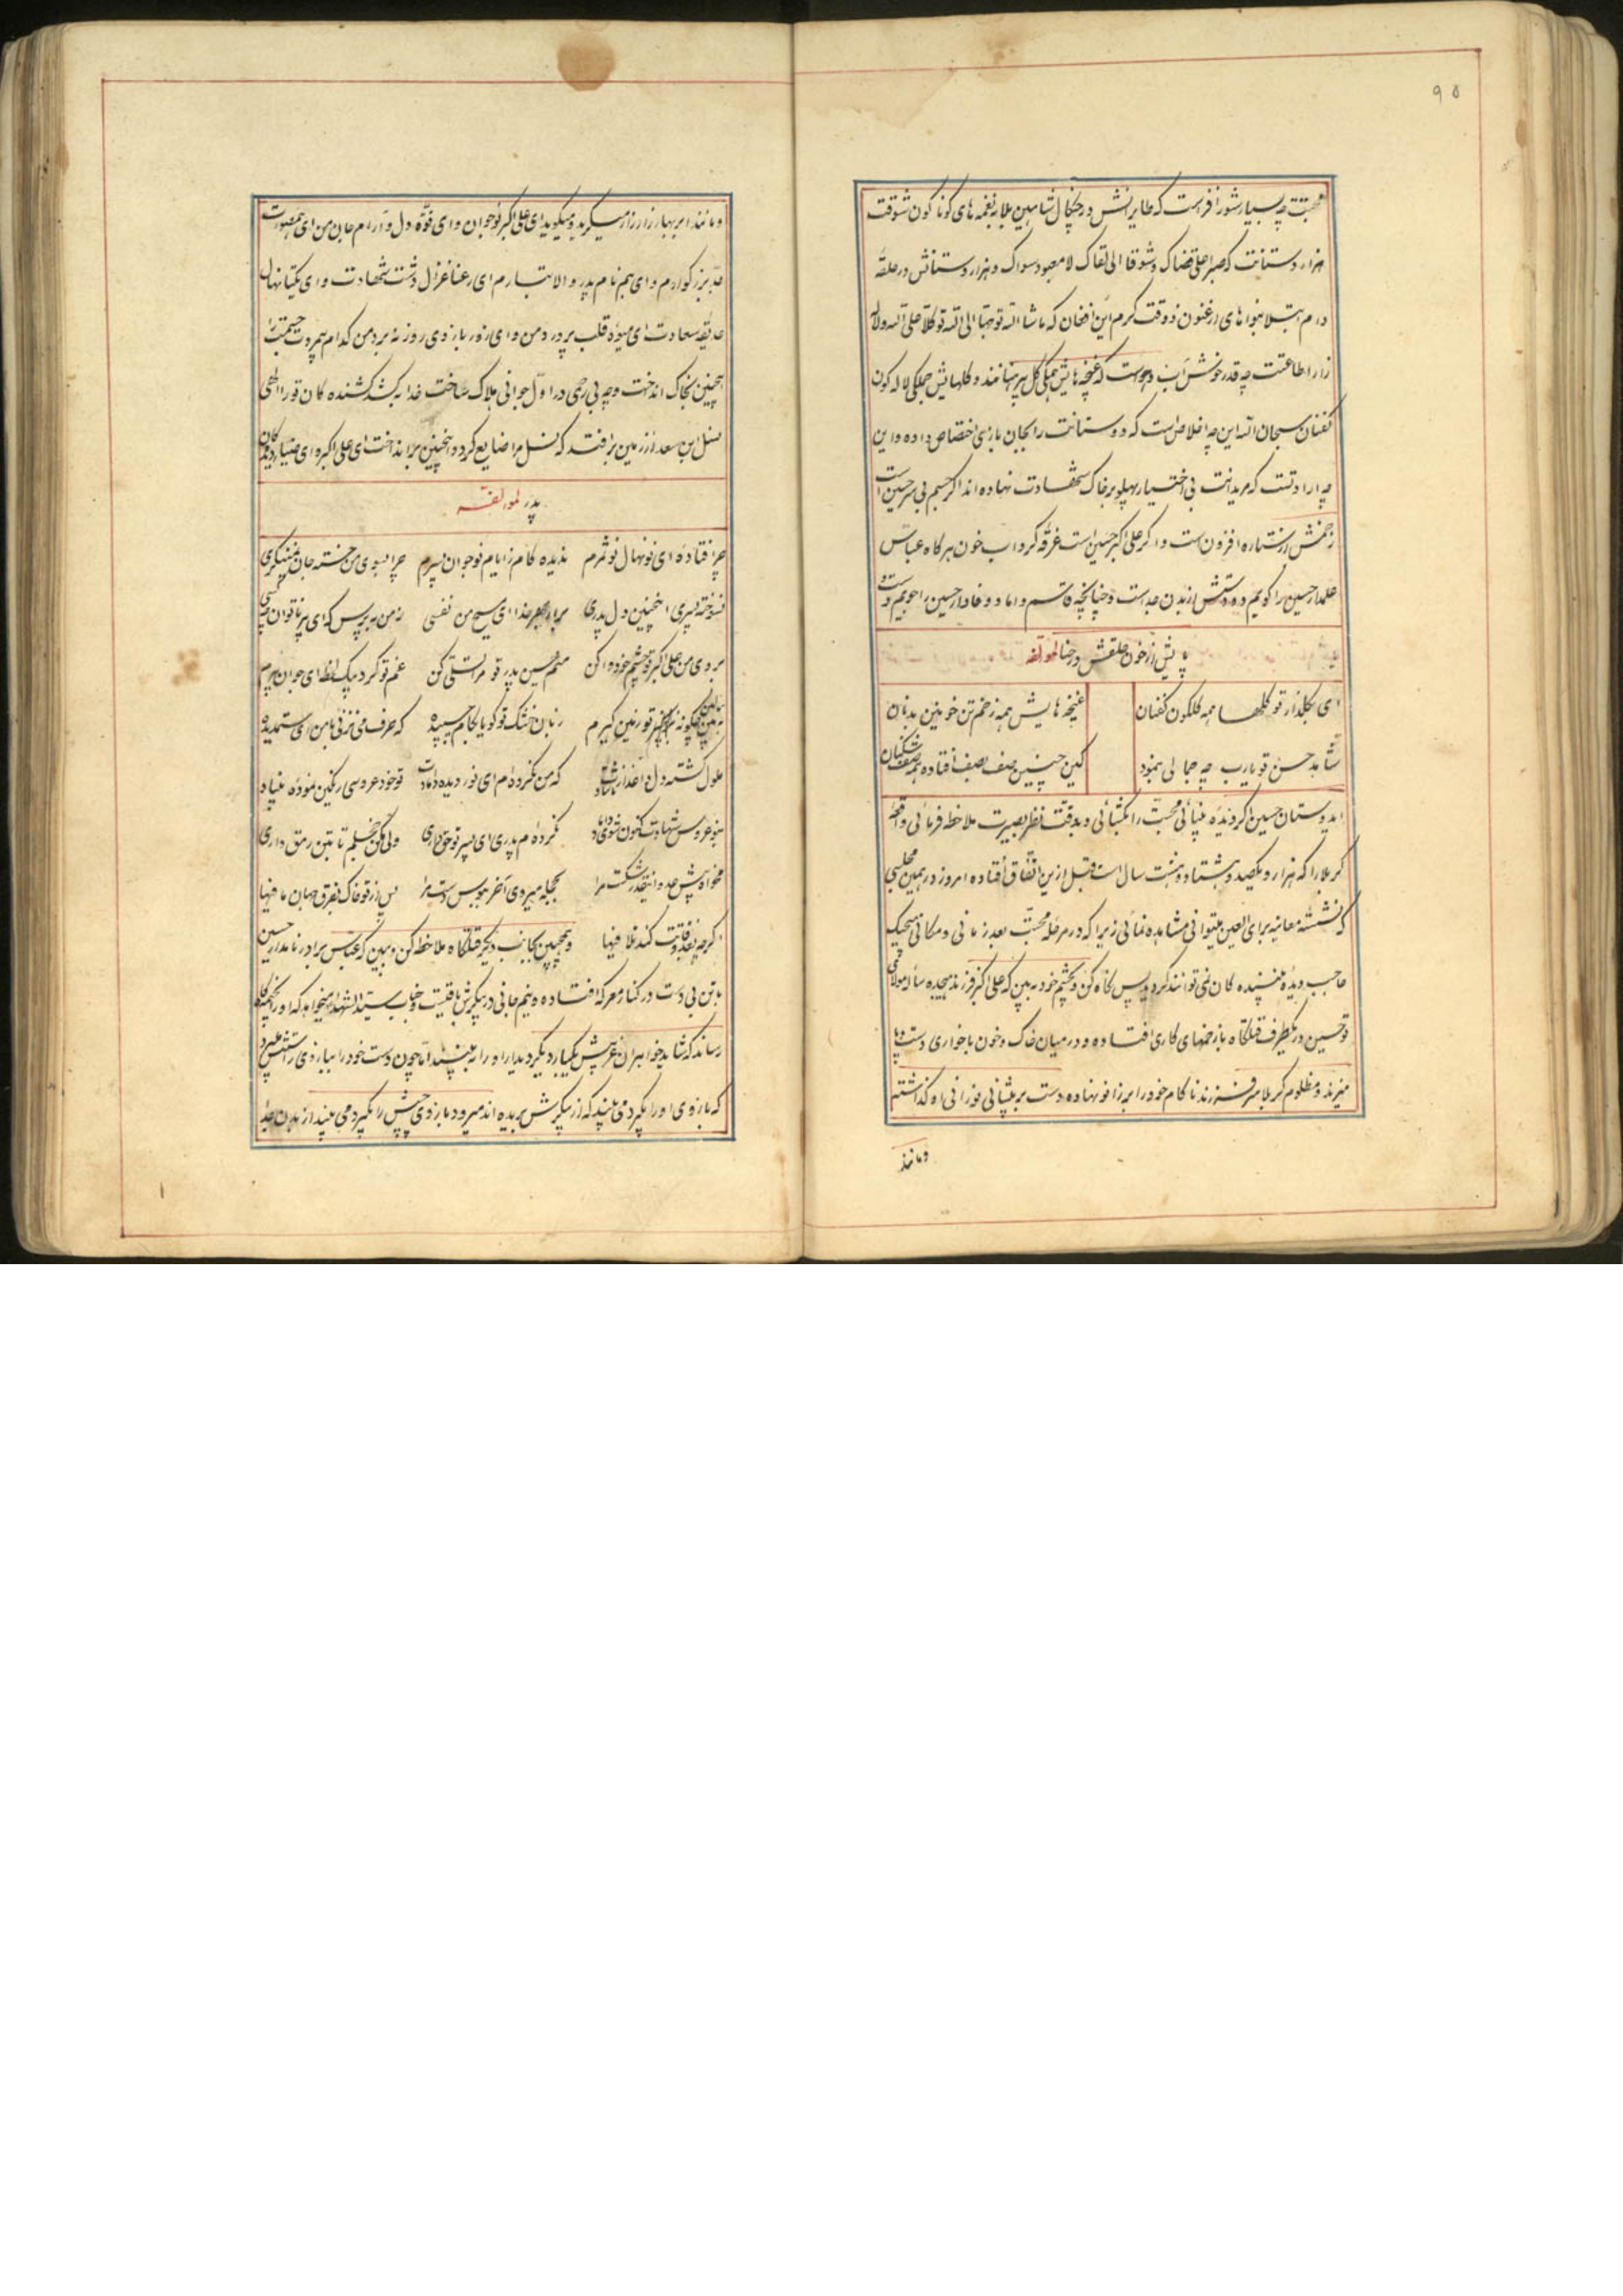 ۹۵
محبتت چه بسیار شور افزاست که طایرانش در چنکال شاهین بلا به نغمه های کوناکون شوقت
هزار دوستانت که صبرا علی قضاک و شوقا الی لقاک لا معبود سواک و هزار دوستانش در حلقهٔ
دام ابتلا بنواهای ارغنون ذوقت کرم این افغان که ماشا الله توجها الی الله توکلا علی الله و لاله
زار اطاعتت چه قدر خوش آب و هواست که غنچه هایش همکی کل پیرهنانند و کلهایش جملکی لاله کون
کفنان سبحان الله این چه اخلاص است که دوستانت را بجان بازی اختصاص داده و این
چه ارادتست که مریدانت بی اختیار پهلو بر خاک شهادت نهاده اند اکر جسم بی سر حسین است
زخمش از ستاره افزون است و اکر علی اکبر حسین است غرقه کرداب خون هر کاه عباس
علمدار حسین را کویم دو دستش از بدن جداست و چنانچه قاسم داماد وفادار حسین را جویم دست و
پایش از خون حلقش در حنا لمولفه
ای بکلذار تو کلها همه کلکون کفنان غنچه هایش همه زخم تن خونین بدنان
شاهد حسن تو یارب چه جمالی بنمود کین چنین صف بصف افتاده همه صف شکنان
ایدوستان حسین اکر دیدهٔ بینائی محبت را بکشائی و بدقت نظر بصیرت ملاحظه فرمائی واقعهٔ
کربلا را که هزار و یکصد و هشتاد و هشت سال است قبل ازین اتفاق افتاده امروز در همین مجلسی
که نشستهٔ معاینه برای العین میتوانی مشاهده نمائی زیرا که در مرحله محبت بعد زمانی و مکانی هیچیک
حاجب دیدهٔ بیننده کان نمی توانند کردید پس نکاه کن و بچشم خود به بین که علی اکبر فرزند هیجده ساله مولای
تو حسین در یکطرف قتلکاه با زخمهای کاری افتاده و در میان خاک و خون با خواری دست و پا
میزند و مظلوم کربلا سر فرزند ناکام خود را بر زانو نهاده دست بر پیشانی نورانی او کذاشته
و مانند
و مانند ابر بهار زار زار میکرید و میکوید ای علی اکبر نوجوان و ای قوّه دل و آرام جان من ای همصورت
جد بزرکوارم و ای هم نام پدر والا تبارم ای رعنا غزال دشت شهادت و ای یکتا نهال
حدیقه سعادت ای میوهٔ قلب پر درد من و ای زور بازوی روز نبرد من کدام بیمروت جسمت را
اینچنین بخاک انداخت و چه بی رحمی در اول جوانی هلاک ساخت خدا بکشد کشنده کان تورا الهی
نسل ابن سعد از زمین بر افتد که نسل مرا ضایع کرد و اینچنین برانداخت ای علی اکبر ای ضیاء دیدکان
پدر لمولفه
چرا فتادهٔ ای نونهال نو ثمرم ندیده کام ز ایام نوجوان پسرم چرا بسوی من خسته جان نمینکری
نسوخته پسری اینچنین دل پدری برای خدا ای مسیح من نفسی ز من بپرس که ای پیر ناتوان چه کسی
بروی من علی اکبر تو چشم خود وا کن منم حسین پدر تو مرا تسلی کن غم تو کرد بیک لحظه ای جوان پیرم
ببین چکونه زبان خشک تو کویا بکام چسپیده که حرف می نزنی با من ای ستمدیده
ملول کشته دل که من نکرده ام ای نور دیده داماد تو خود عروسی رنکین نمودهٔ بنیاد
بنو عروس شهادت کنون شوی داماد نکرده ام پدری ای پسر تو حق داری ولی مکن خجلم تا بتن رمق داری
مخواه پیش عدو اینقدر شکست مرا بحجله میروی آخر ببوس دست مرا پس از تو خاک بفرق جهان ما فیها
و همچنین بجانب دیکر قتلکاه ملاحظه کن و ببین که عباس برادر نامدار حسین
با تن بی دست در کنار معرکه افتاده و نیم جانی در پیکرش باقیست و جناب سید الشهدا میخواهد که او را بخیمه کاه
رساند که شاید خواهران غریبش یکبار دیکر دیدار او را به بینند اما چون دست خود را ببازوی راستش میبرد
که بازوی او را بکیرد می بیند که از پیکرش بریده اند میرود بازوی چپش را بکیرد می بیند از بدن جدا